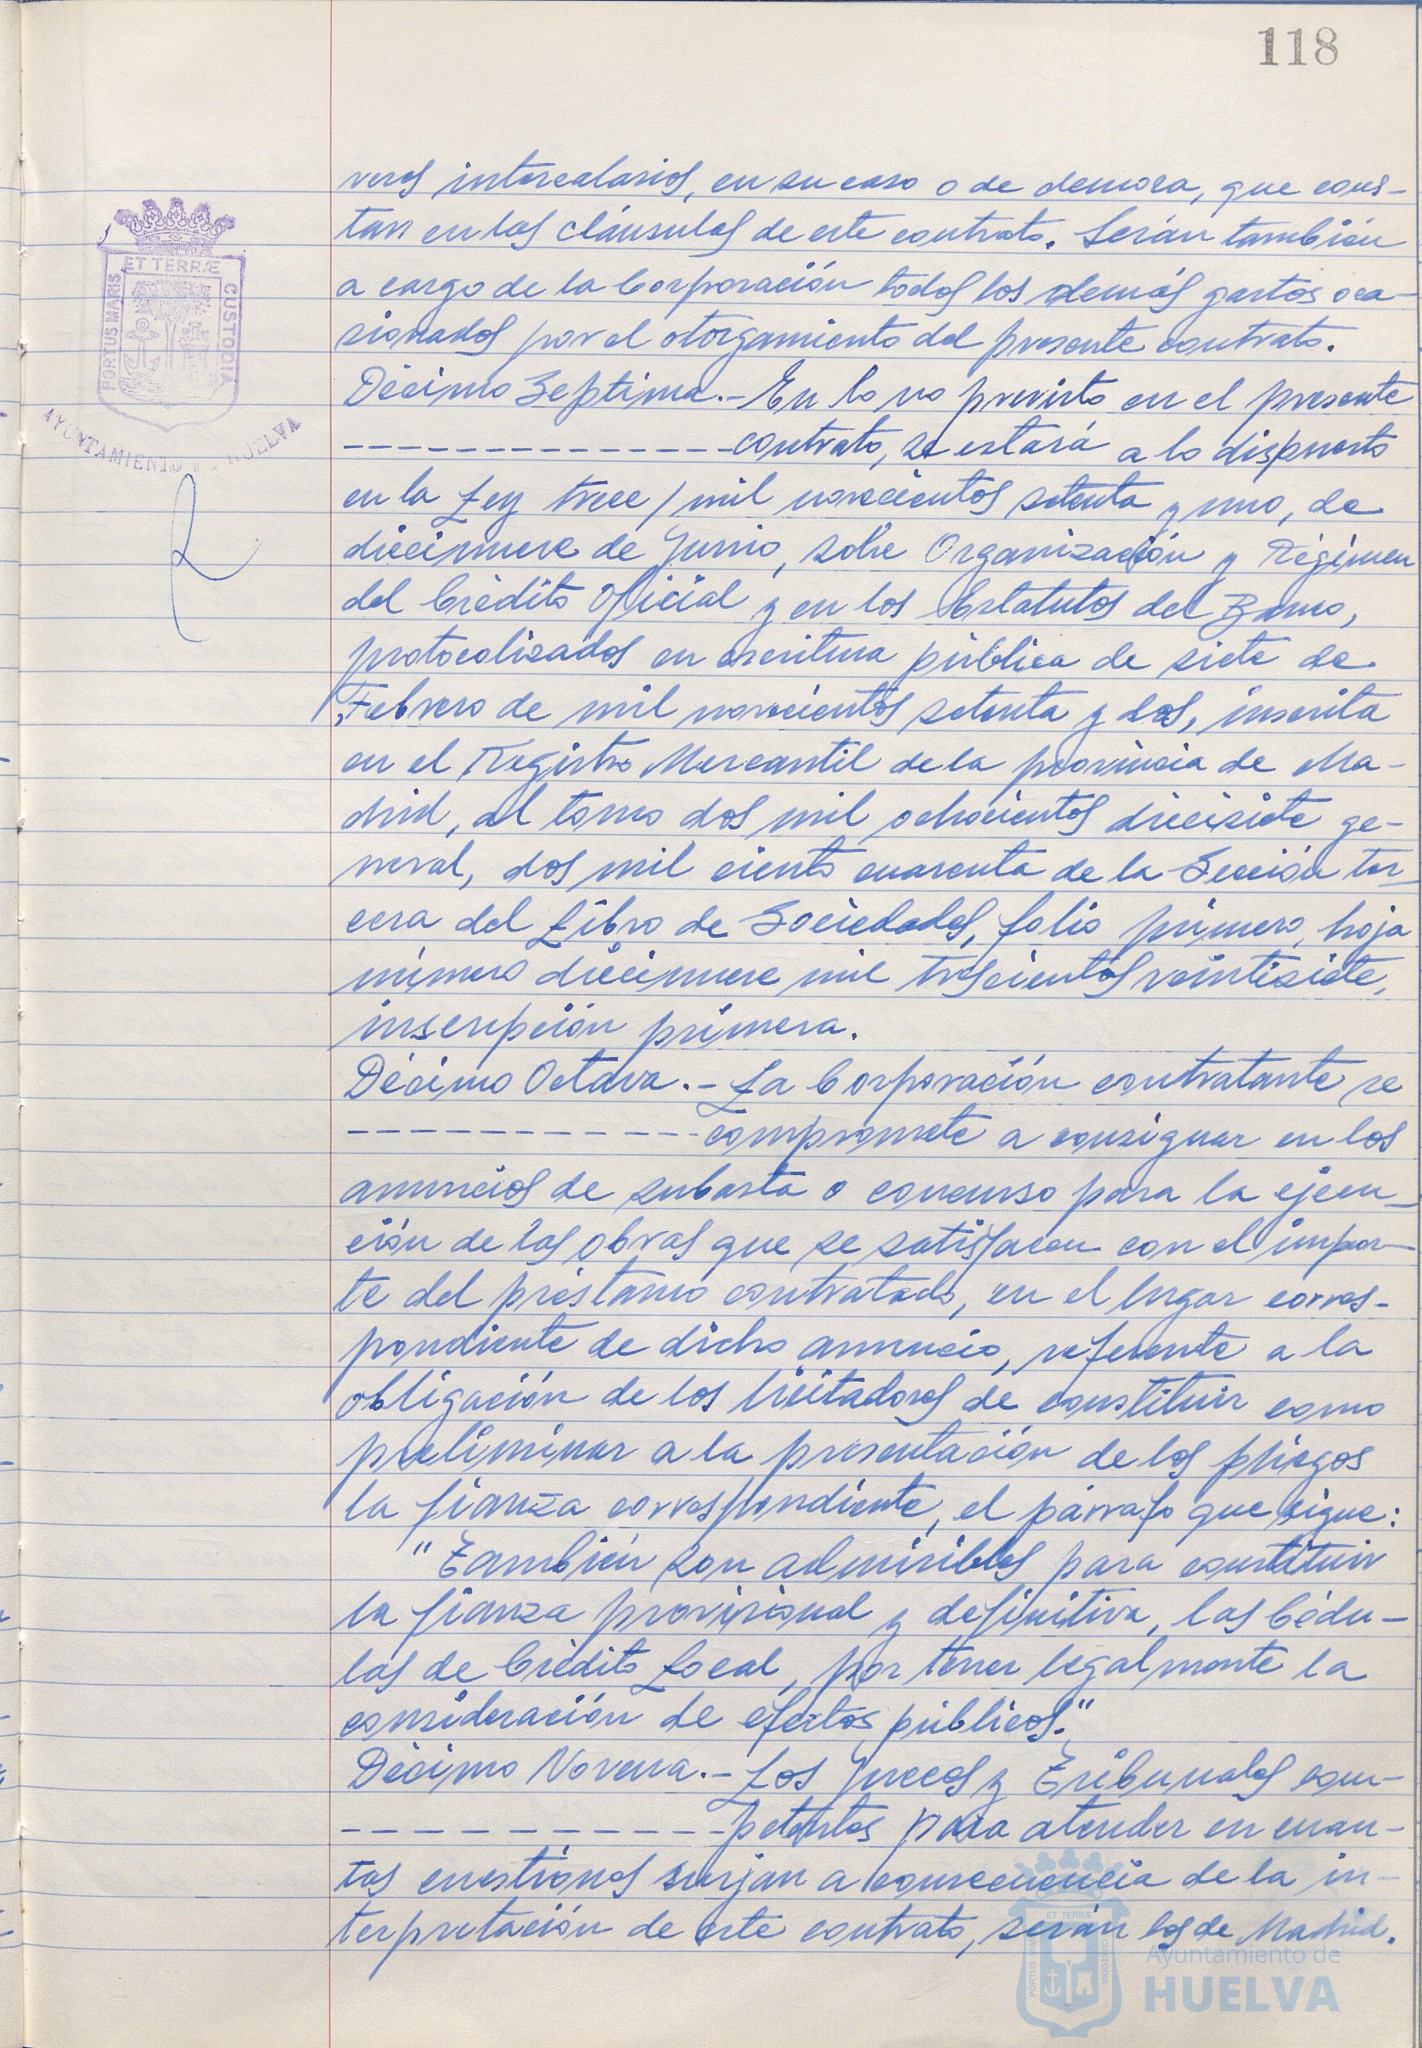 118
PORTUS MARIS ET TERRÆ CUSTODIA
AYUNTAMIENTO DE HUELVA
reses intercalarios, en su caso o de demora, que cons-
tan en las cláusulas de este contrato. Serán también
a cargo de la Corporación todos los demás gastos oca-
sionados por el otorgamiento del presente contrato.
Décimo Septima.- En lo no previsto en el presente
-------------- contrato, se estará a lo dispuesto
en la Ley trece/mil novecientos setenta y uno, de
diecinueve de Junio, sobre Organización y Régimen
del Crédito Oficial y en los Estatutos del Banco,
protocolizados en escritura pública de siete de
Febrero de mil novecientos setenta y dos, inscrita
en el Registro Mercantil de la provincia de Ma-
drid, al tomo dos mil ochocientos diecisiete ge-
neral, dos mil ciento cuarenta de la Sección ter-
cera del Libro de Sociedades, folio primero, hoja
número diecinueve mil trescientos veintisiete,
inscripción primera.
Décimo Octava.- La Corporación contratante se
------------ compromete a consignar en los
anuncios de subasta o concurso para la ejecu-
ción de las obras que se satisfacen con el impor-
te del préstamo contratado, en el lugar corres-
pondiente de dicho anuncio, referente a la
obligación de los licitadores de constituir como
preliminar a la presentación de los pliegos
la fianza correspondiente, el párrafo que sigue:
"También son admisibles para constituir
la fianza provisional y definitiva, las Cédu-
las de Crédito Local, por tener legalmente la
consideración de efectos públicos."
Décimo Novena.- Los Jueces y Tribunales com-
------------ petentes para atender en cuan-
tas cuestiones surjan a consecuencia de la in-
terpretación de este contrato, serán los de Madrid.
Ayuntamiento de
HUELVA